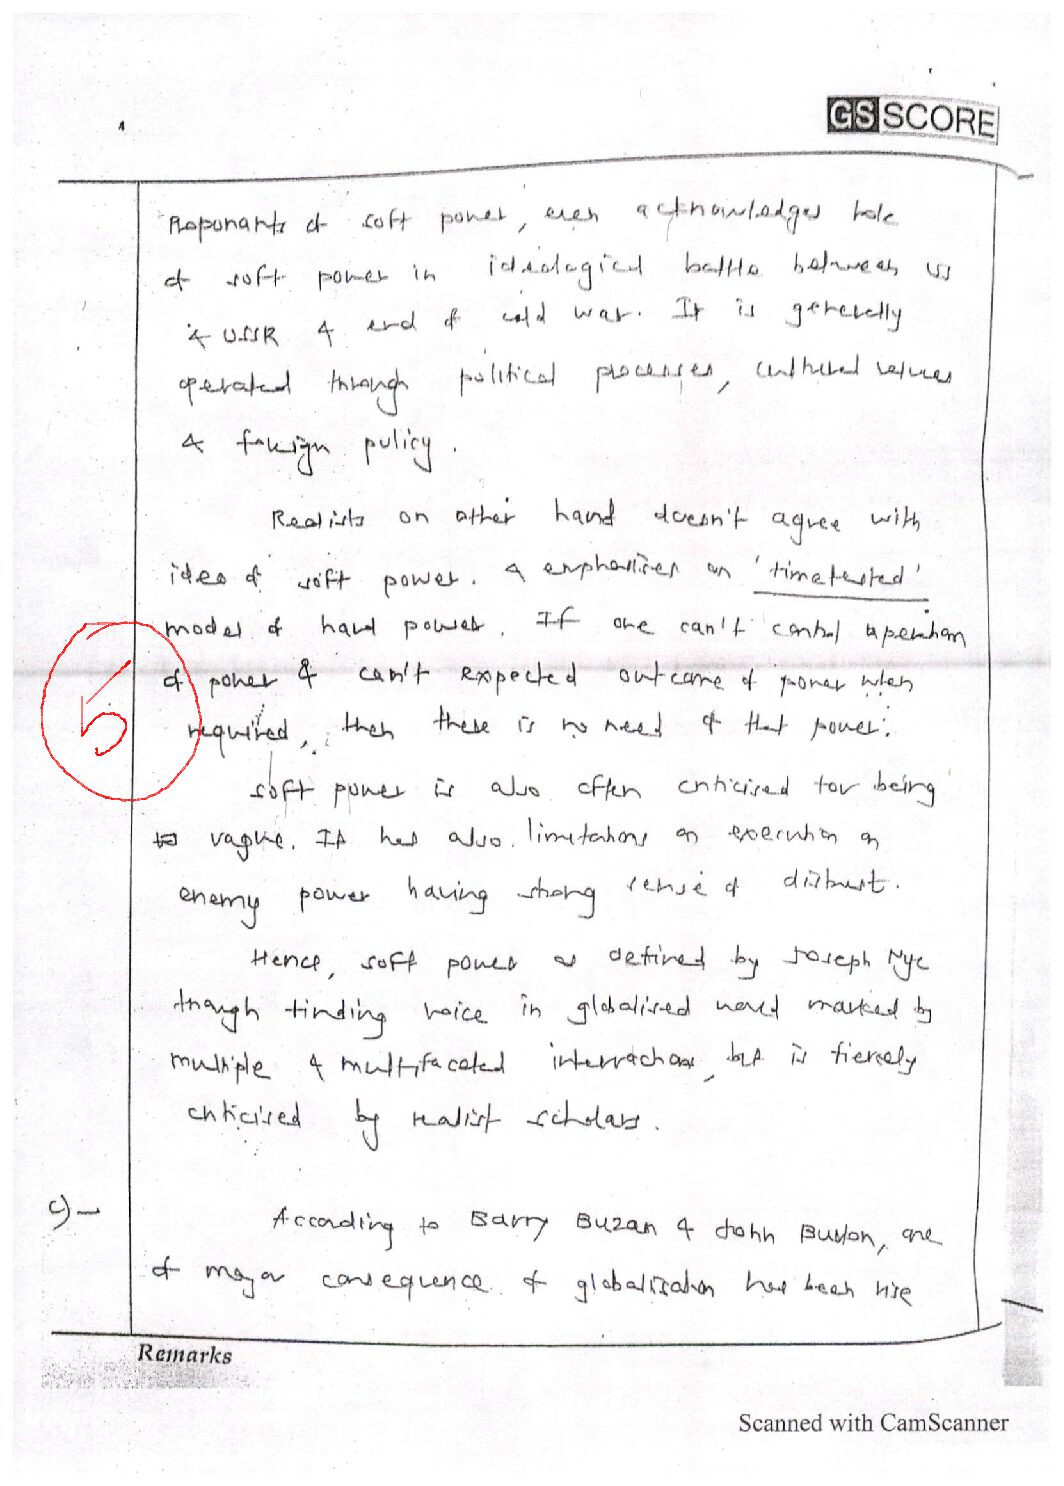 GS SCORE
Proponants of soft power, even acknowledges role
of soft power in idealogical battle between US
& USSR & end of cold war. It is generally
operated through political processes, cultural values
& foreign policy.
Realists on other hand doesn't agree with
idea of soft power. & emphasizes on 'timetested'
model of hard power. If one can't control operation
of power & can't expected outcome of power when
required, then there is no need of that power.
soft power is also often criticised for being
vague. It has also limitations on execution on
enemy power having strong sense of distrust.
Hence, soft power as defined by Joseph Nye
though finding voice in globalised world marked by
multiple & multifaceted interractions, but is fiercely
criticised by realist scholars.
c)-
According to Barry Buzan & John Burton, one
of major consequence of globalisation has been rise
5
Remarks
Scanned with CamScanner